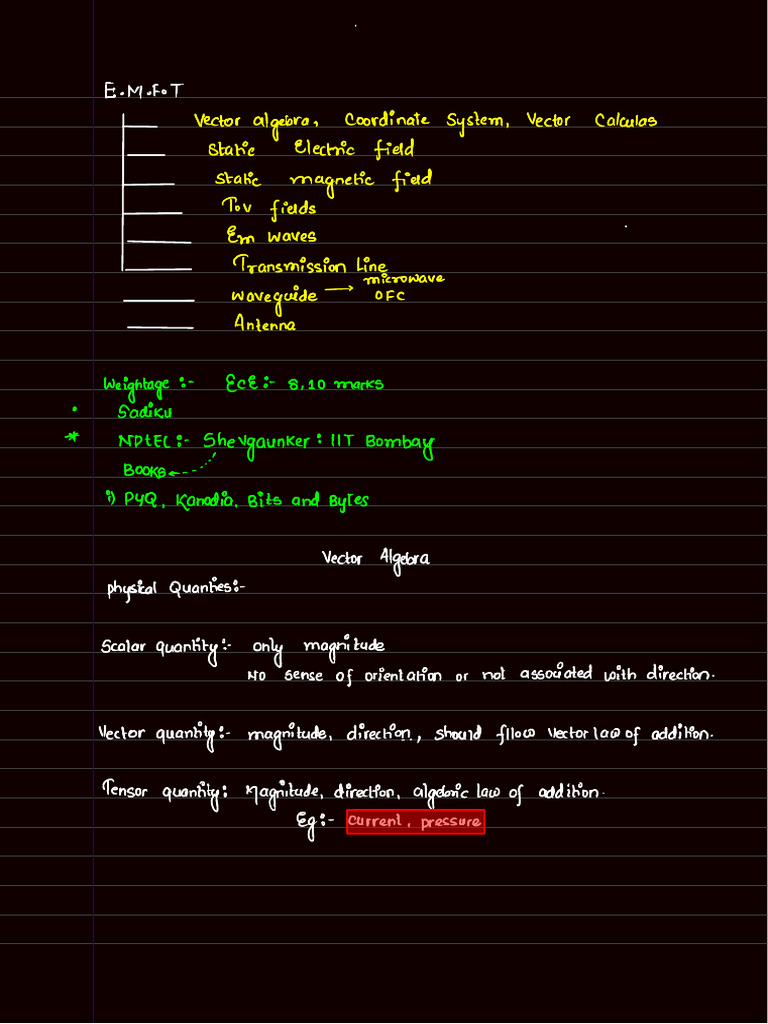 E.M.F.T
Vector algebra, Coordinate System, Vector Calculas
Static Electric field
Static magnetic field
Tov fields
Em waves
Transmission Line
waveguide → microwave
OFC
Antenna
Weightage :- ECE :- 8,10 marks
• Sadiku
* NPtEL :- Shevgaunker : IIT Bombay
Books
i) PYQ, Kanodia, Bits and Bytes
Vector Algebra
physical Quanties:-
Scalar quantity:- only magnitude
No sense of orientation or not associated with direction.
Vector quantity:- magnitude, direction, should fllow vector law of addition.
Tensor quantity: Magnitude, direction, algebric law of addition.
Eg:- Current, pressure